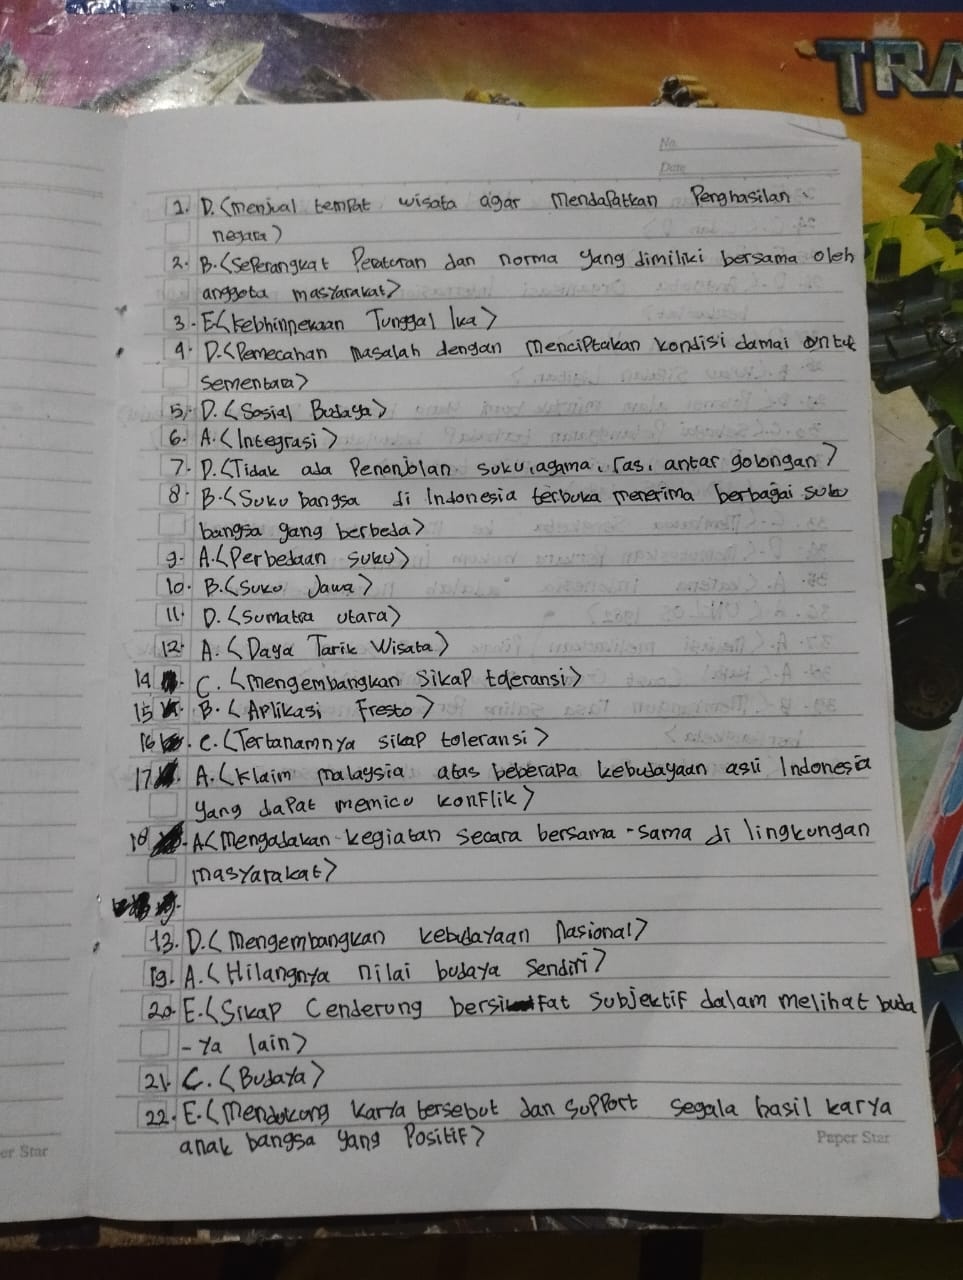 TRA
No.
Date
1. D. <menjual tempat wisata agar mendapatkan Penghasilan
negara>
2. B. <Seperangkat Peraturan dan norma yang dimiliki bersama oleh
anggota masyarakat>
3. E. <Kebhinnekaan Tunggal Ika>
4. D. <Pemecahan masalah dengan menciptakan kondisi damai untuk
Sementara>
5. D. <Sosial Budaya>
6. A. <Integrasi>
7. D. <Tidak ada Penonjolan suku, agama, ras, antar golongan>
8. B. <Suku bangsa di Indonesia terbuka menerima berbagai suku
bangsa yang berbeda>
9. A. <Perbedaan suku>
10. B. <Suku Jawa>
11. D. <Sumatra utara>
12. A. <Daya Tarik Wisata>
14. C. <mengembangkan Sikap toleransi>
15. B. <Aplikasi Fresto>
16. C. <Tertanamnya sikap toleransi>
17. A. <Klaim malaysia atas beberapa kebudayaan asli Indonesia
yang dapat memicu konflik>
18. A <Mengadakan kegiatan secara bersama-sama di lingkungan
masyarakat>
13. D. <Mengembangkan kebudayaan Nasional>
19. A. <Hilangnya nilai budaya Sendiri>
20. E. <Sikap Cenderung bersifat Subjektif dalam melihat buda
-ya lain>
21. C. <Budaya>
22. E. <Mendukung karya tersebut dan support segala hasil karya
anak bangsa yang Positif>
er Star
Paper Star